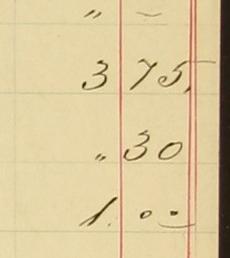 " ~
3 75.
" 30
1.00